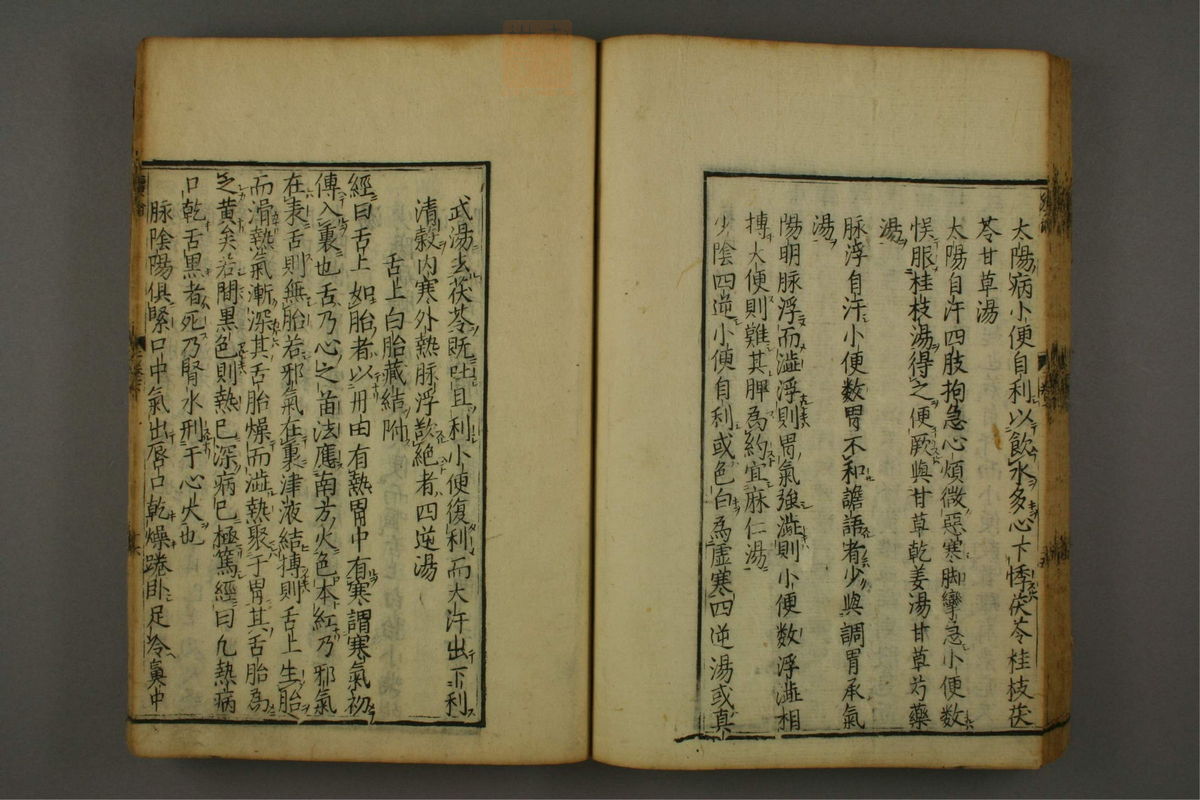 太陽病小便自利以飲水多心下悸茯苓桂枝茯
苓甘草湯
太陽自汗四肢拘急心煩微惡寒脚攣急小便數
悞服桂枝湯得之便厥與甘草乾姜湯甘草芍藥
湯
脉浮自汗小便數胃不和譫語者少與調胃承氣
湯
陽明脉浮而澁浮則胃氣強澁則小便數浮澁相
搏大便則難其脾為約宜麻仁湯
少陰四逆小便自利或色白為虛寒四逆湯或真
武湯去茯苓既吐且利小便復利而大汗出下利
清穀内寒外熱脉浮欲絶者四逆湯
舌上白胎藏結附
經曰舌上如胎者以丹田有熱胃中有寒謂寒氣初
傳入裏也舌乃心之苗法應南方火色本紅乃邪氣
在表舌則無胎若邪氣在裏津液結搏則舌上生胎
而滑熱氣漸深其舌胎燥而澁熱聚于胃其舌胎為
之黄矣若間黒色則熱已深病已極篤經曰凡熱病
口乾舌黒者死乃腎水刑于心火也
脉陰陽俱緊口中氣出唇口乾燥踡卧足冷鼻中